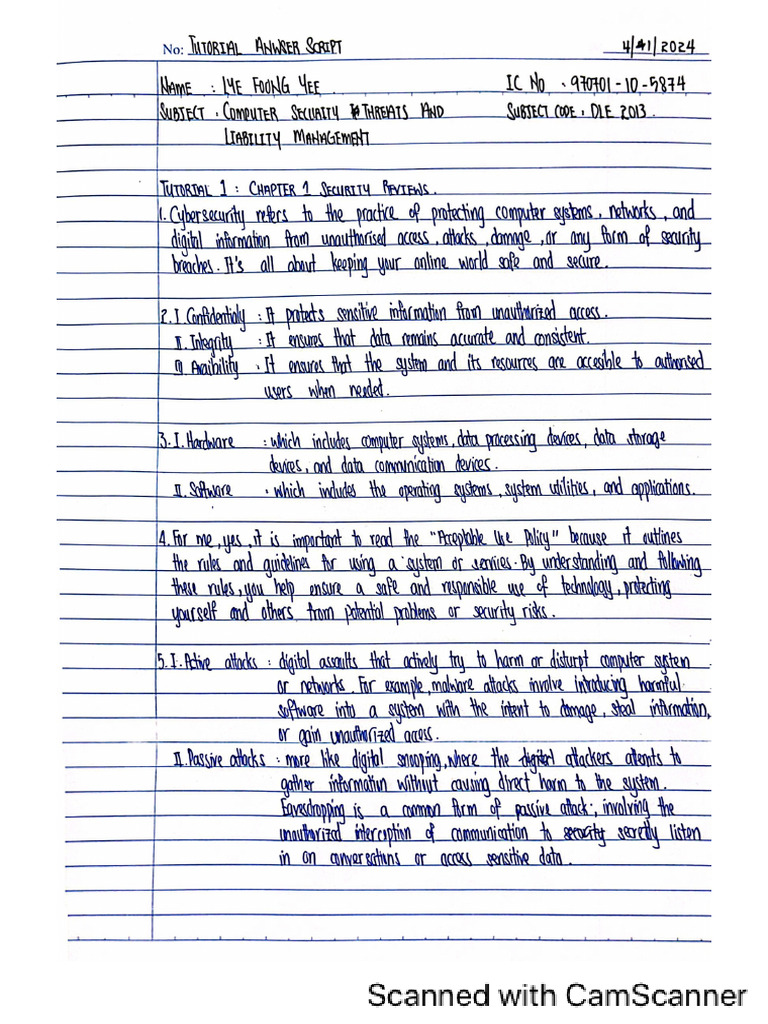 No: TUTORIAL ANWSER SCRIPT 4/1/2024
NAME : LYE FOONG YEE IC NO : 970701-10-5874
SUBJECT : COMPUTER SECURITY & THREATS AND SUBJECT CODE : DLE 2013.
LIABILITY MANAGEMENT
TUTORIAL 1 : CHAPTER 1 SECURITY REVIEWS.
1. Cybersecurity refers to the practice of protecting computer systems, networks, and
digital information from unauthorised access, attacks, damage, or any form of security
breaches. It's all about keeping your online world safe and secure.
2. I. Confidentialy : It protects sensitive information from unauthorized access.
II. Integrity : It ensures that data remains accurate and consistent.
III. Avaibility : It ensures that the system and its resources are accesible to authorised
users when needed.
3. I. Hardware : which includes computer systems, data processing devices, data storage
devices, and data communication devices.
II. Software : which includes the operating systems, system utilities, and applications.
4. For me, yes, it is important to read the "Acceptable Use Policy" because it outlines
the rules and guidelines for using a system or services. By understanding and following
these rules, you help ensure a safe and responsible use of technology, protecting
yourself and others from potential problems or security risks.
5. I. Active attacks : digital assaults that actively try to harm or disturpt computer system
or networks. For example, malware attacks involve introducing harmful
software into a system with the intent to damage, steal information,
or gain unauthorized access.
II. Passive attacks : more like digital snooping, where the digital attackers attents to
gather information without causing direct harm to the system.
Eavesdropping is a common form of passive attack, involving the
unauthorized interception of communication to security secretly listen
in on conversations or access sensitive data.
Scanned with CamScanner